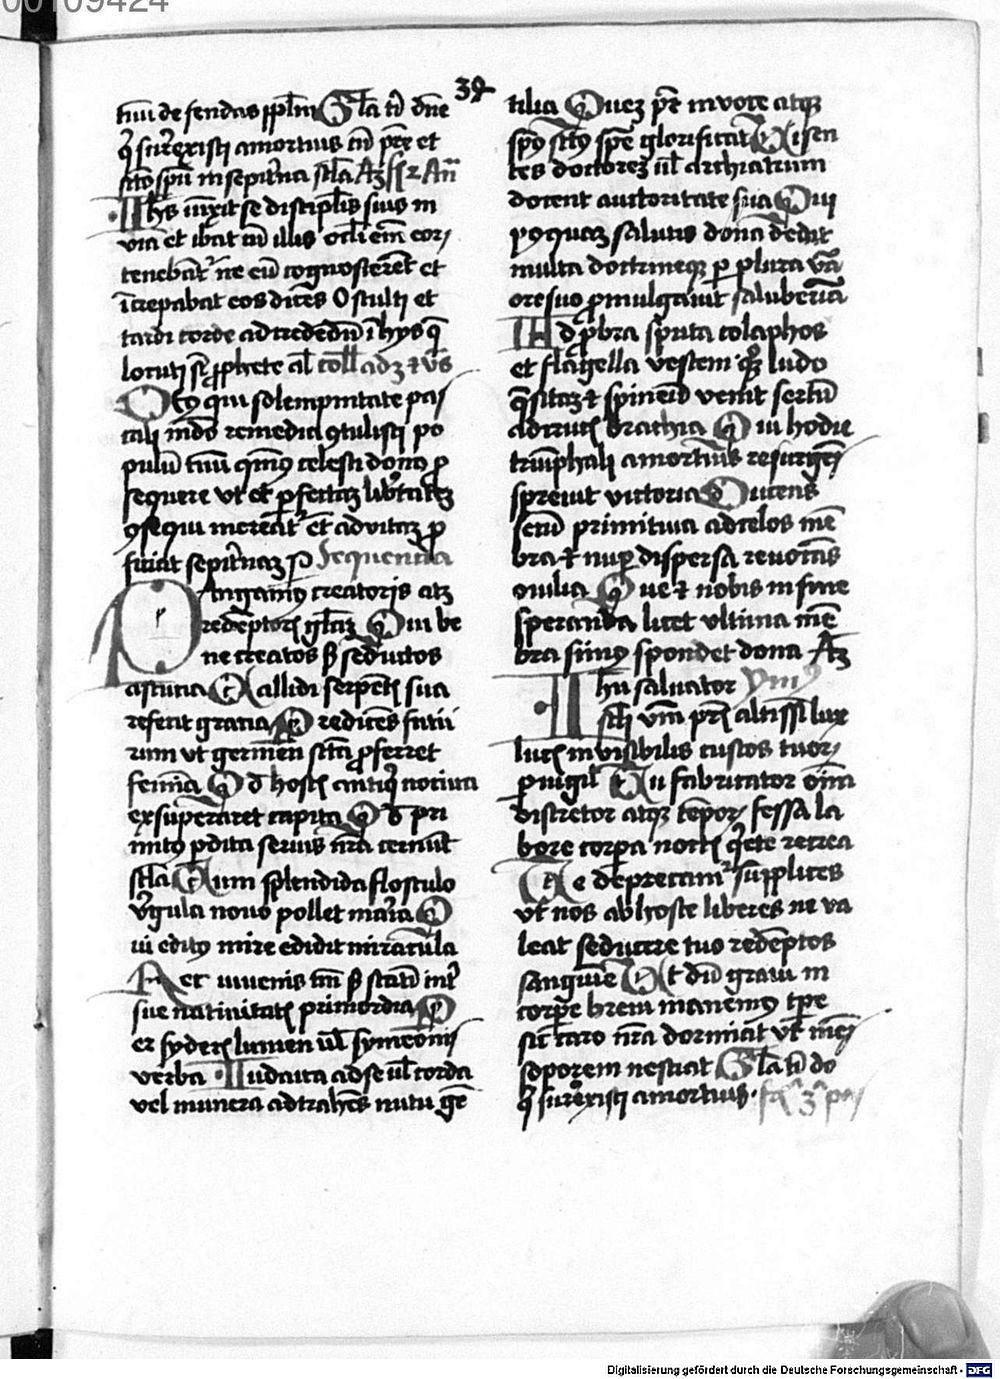 00109424
39
tuu de fendas pplm Gla t dne
q surrexisti amortuus cu pre et
scto spu in sepitna scla
Ihs iunxit se discipulis suis in
via et ibat cu illis ocli em eor
tenebat ne eu cognosceret et
increpabat eos dices O stulti et
tardi corde ad credendu ihys q
locuti st prophete al coll adz vs
Ds qui solempnitate pas
cali mdo remedia gtulisti po
pulu tuu qms celesti dono p
sequere vt et pfectaz libtatez
gsequi mereat et ad vitaz p
ficiat sepitnaz p Sequentia
Pangamus creatoris atz
redemptoris gliaz Qui be
ne creatos s seductos
astucia Callidi serpetis sua
referit gratia Predices futu
rum vt germen scta pferret
femina Qd hostis antiqi nociua
exsuperaret capita Qd pri
mito pdita seruus nra cernut
scla Cum splendida flosculo
virgula nouo pollet maria Q
ui editus mire edidit miracula
Aet iuuenis tm s statu inr
sue natiuitatis primordia P
er syderis lumen ul symeonis
verba Iudaica ad se ul corda
vel munera ad trahes nutu ge
tilia Quez pr in voce atqz
sps scts spe glorificat Niscen
tes doctorez ul archiatrum
docent auctoritate sua Qui
psquaz salutis dona dedit
multa doctrineqz p plura va
ore suo pmulgauit saluberia
Ad pbra sputa colaphos
et flagella vestem qz ludo
qsitaz et spineu venit sertu
ad crucis brachia Qui hodie
triuphali amortuis resurges
spreuit victoria Ducens
secu primitiua ad celos me
bra et nup dispersa reuocas
ouilia Que et nobis in fine
speranda licet vltima me
bra simus spondet dona Az
Ihu saluator Ymnus
scli vm pris altissi lux
lucis in visibilis custos tuor
puigil Tu fabricator oim
discretor atqz tepor fessa la
bore corpa noctis qete recrea
Te deprecamr supplices
vt nos ab hoste liberes ne va
leat seducere tuo redeptos
sanguie Vt du graui in
corpre breui manemus tpre
sic caro nra dormiat vt mes
soporem nesciat Gla ti do
q surrexisti amortuis
Digitalisierung gefördert durch die Deutsche Forschungsgemeinschaft - DFG